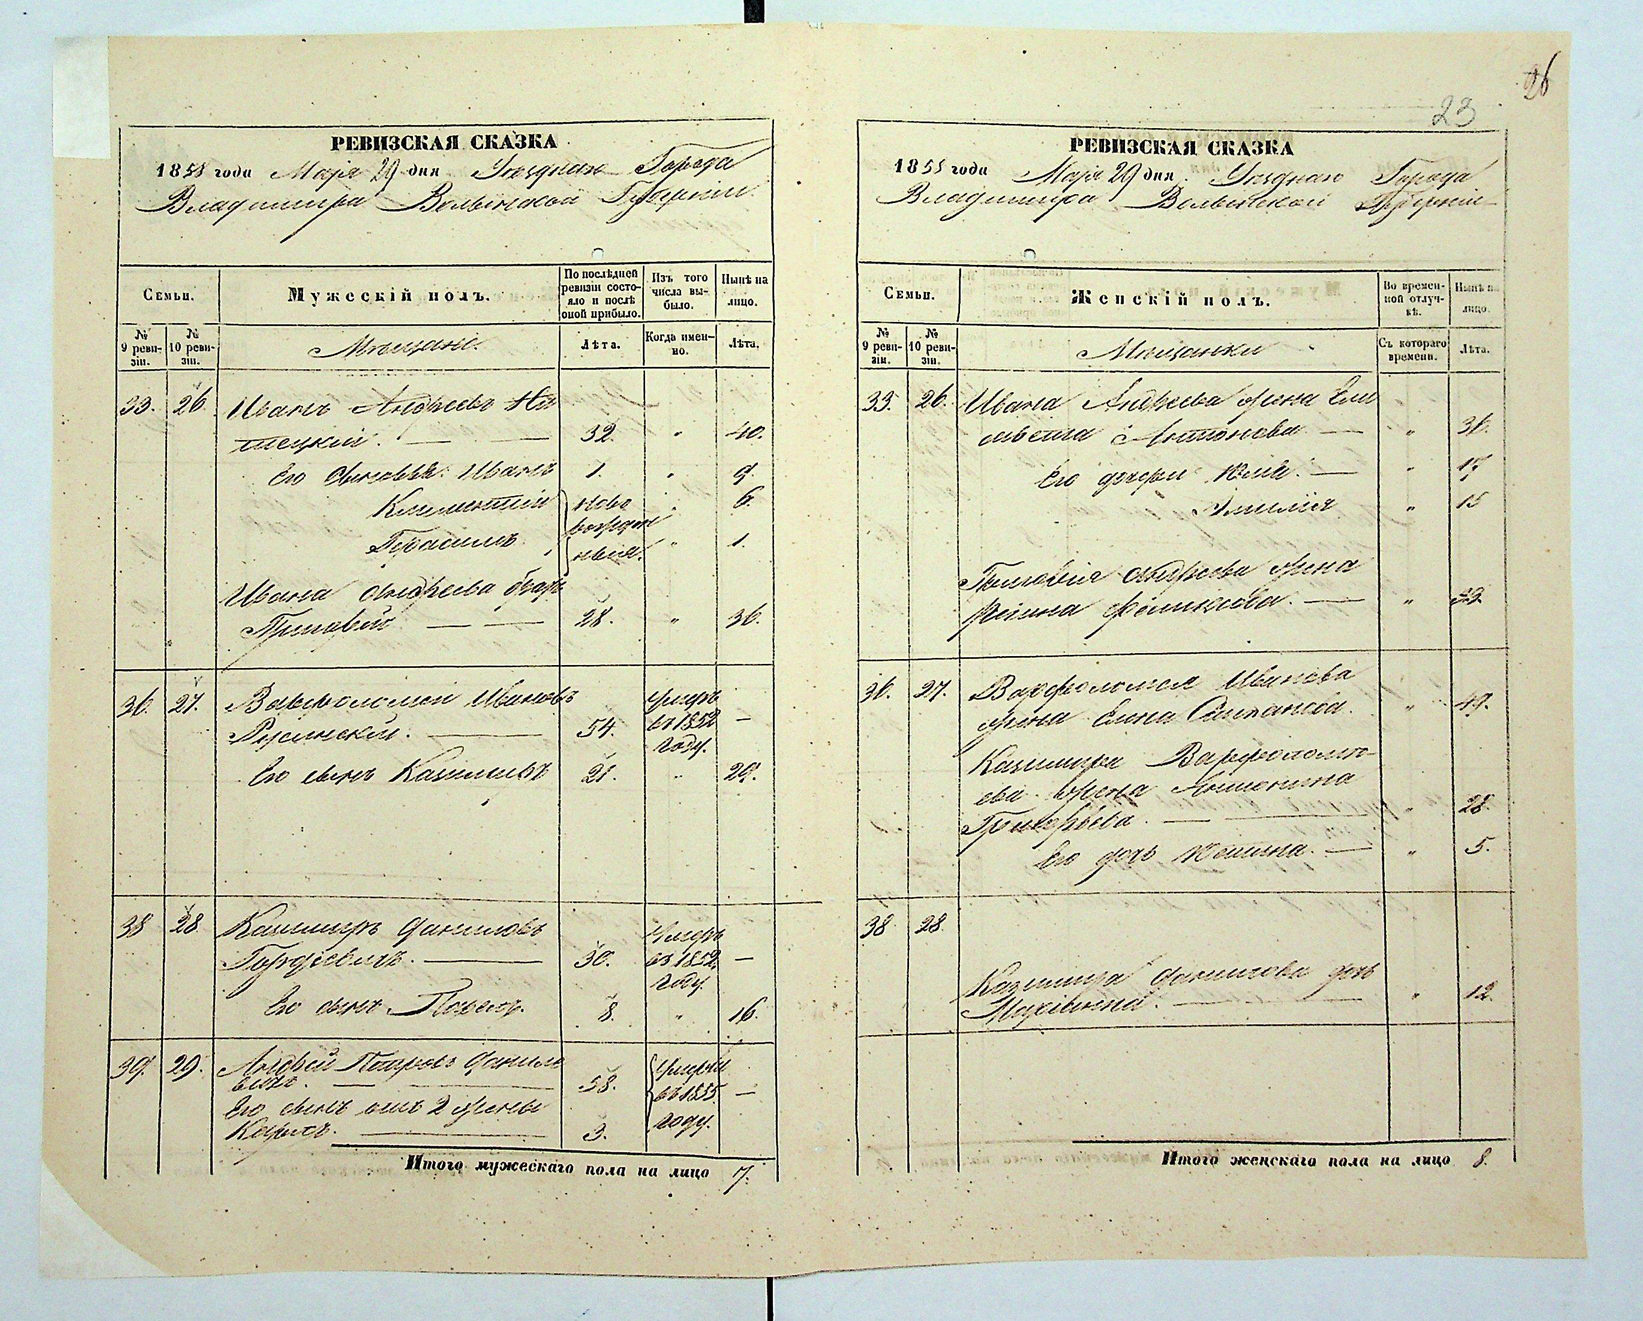 26
23
РЕВИЗСКАЯ СКАЗКА
1858 года Маія 29 дня Уѣзднаго Города
Владимира Волынской Губерніи
Семьи.
Мужескій полъ.
По послѣдней ревизіи состояло и послѣ оной прибыло.
Изъ того числа выбыло.
Нынѣ на лицо.
№ 9 ревизіи.
№ 10 ревизіи.
Мѣщане.
Лѣта.
Когда именно.
Лѣта.
33. 26. Иванъ Андреевъ
32. " 40.
Его сыновья: Иванъ 1. " 9.
Климентій Ново " 6.
Герасимъ. рожден ные. " 1.
Ивана Андреева братъ
28. " 36.
36. 27. Варфоломей Ивановъ Умеръ
54. въ 1852 —
году.
Его сынъ Казимиръ 21. " 29.
38 28 Казимиръ Даниловъ Умеръ
Гордѣевичъ. 30. въ 1852 —
году
Его сынъ 8. " 16.
39. 29. Андрей Петровъ Данил Умерли
евичъ. 58. въ 1855 —
Его сынъ отъ 2 жены году.
Карлъ. 3.
Итого мужескаго пола на лицо 7.
РЕВИЗСКАЯ СКАЗКА
1858 года Маія 29 дня Уѣзднаго Города
Владимира Волынской Губерніи
Семьи.
Женскій полъ.
Во временной отлучкѣ.
Нынѣ на лицо.
№ 9 ревизіи.
№ 10 ревизіи.
Мѣщанки
Съ котораго времени.
Лѣта.
33. 26. Ивана Андреева жена Ели
савета Антонова — " 36.
Его дочери Юлія — " 17
Эмилія " 15
Андреева жена
Феликсова. — "
36. 27. Варфоломея Иванова
жена Елена Степанова. " 49.
Казимира Варфоломе-
ева жена Антонина
Григорьева. — " 28.
Его дочь — " 5.
38 28
Казимира Данилова дочь
— " 12.
Итого женскаго пола на лицо 8.